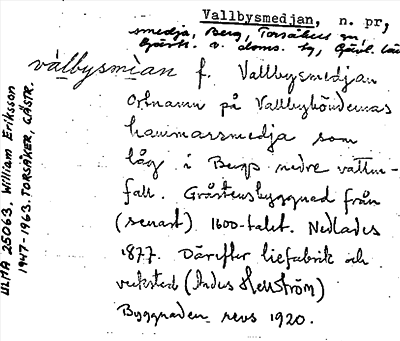 Vallbysmedjan, n. pr,
smedja, Berg, Torsåkers sn,
Gästr. ö. doms. tg, Gävl. län
vàlbysmìan f. Vallbysmedjan
Ortnamn på Vallbyböndernas
hammarsmedja som
låg i Bergs nedre vatten-
fall. Gråstensbyggnad från
(senast) 1600-talet. Nedlades
1877. Därefter liefabrik och
verkstad (Anders Hellström)
Byggnaden revs 1920.
ULMA 25063. William Eriksson
1947-1963. TORSÅKER, GÄSTR.